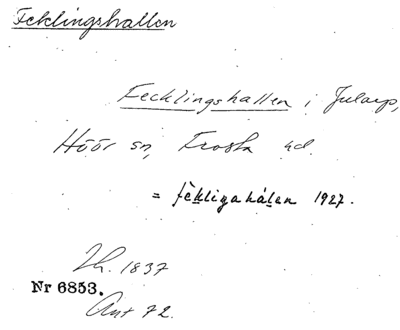 Fecklingshallen
Fecklingshallen i Jularp,
Höör sn, Frosta hd.
= fèkligahálen 1927.
Th. 1837
Nr 6853.
Ant 72.